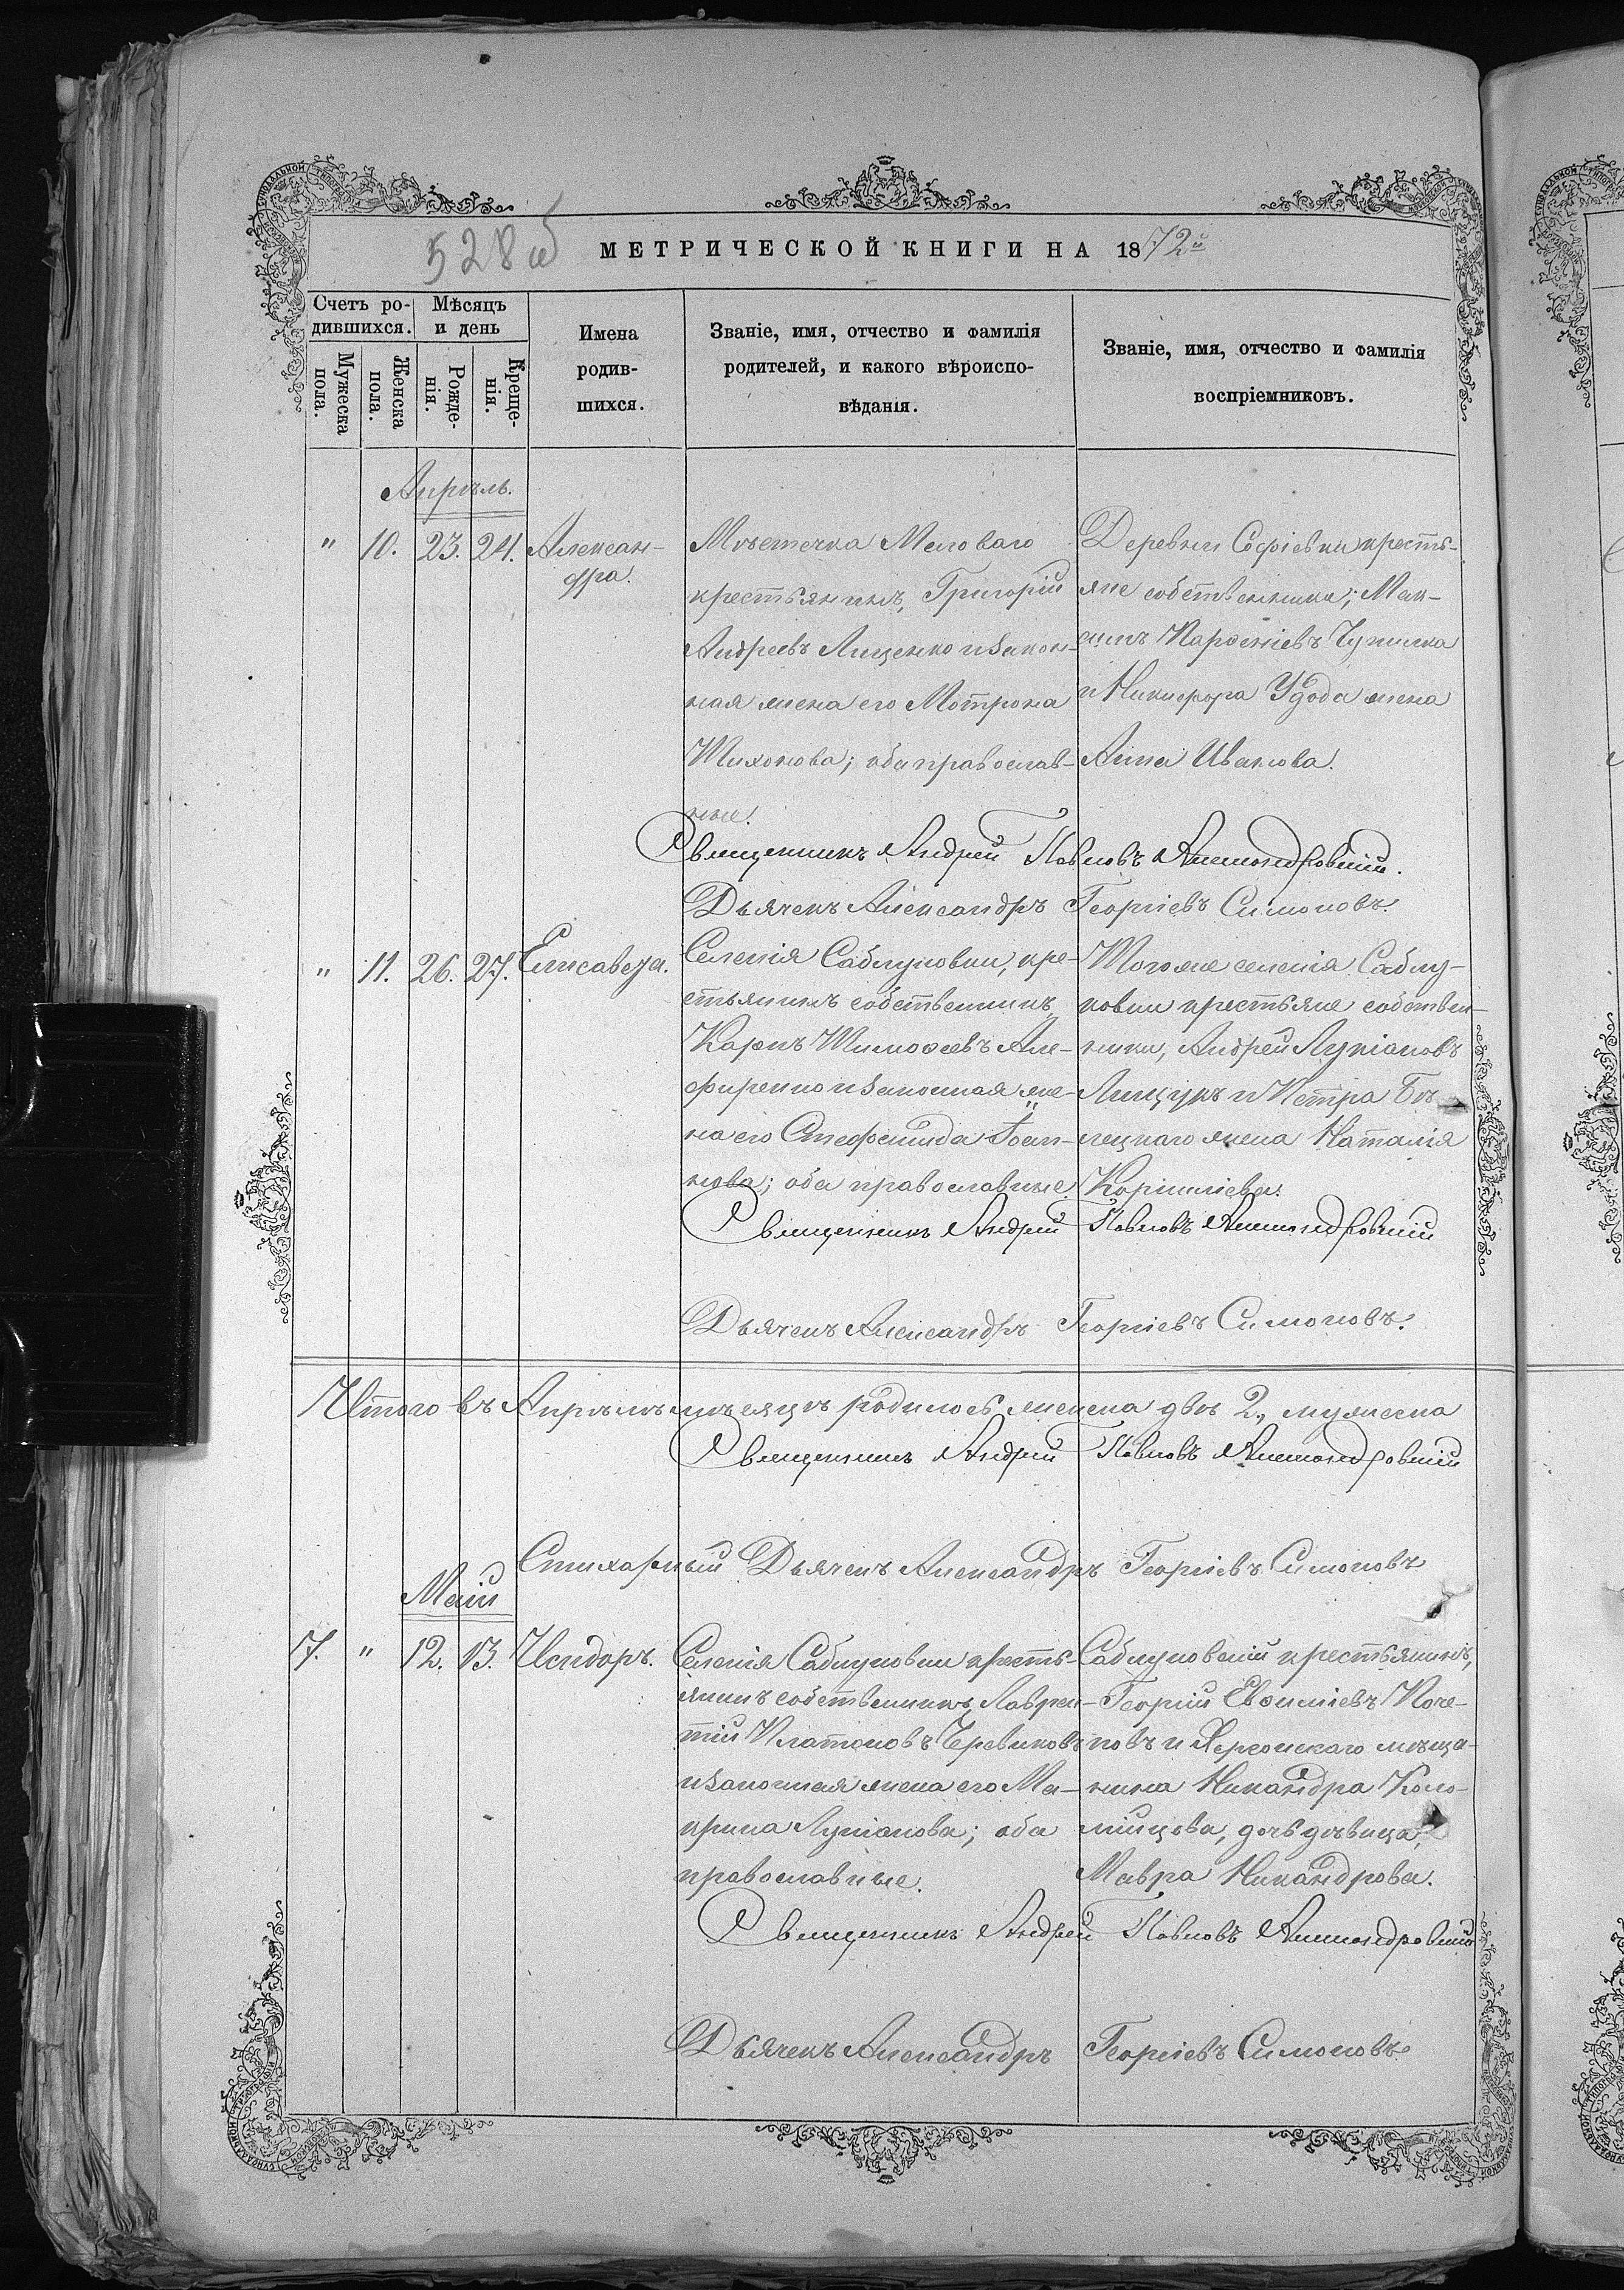 528 об
МЕТРИЧЕСКОЙ КНИГИ НА 1872й
Счетъ ро-
дившихся.
Мужеска
пола.
Женска
пола.
Мѣсяцъ
и день
Рожде-
нія.
Креще-
нія.
Имена
родив-
шихся.
Званіе, имя, отчество и фамилія
родителей, и какого вѣроиспо-
вѣданія.
Званіе, имя, отчество и фамилія
воспріемниковъ.
Апрѣль.
" 10. 23. 24. Алексан-
дра.
Мѣстечка Меловаго
крестьянинъ, Григорій
Андреевъ Лищенко и закон-
ная жена его Мотрона
Тихонова; оба православ-
ные.
Деревни Софіевки кресть-
яне собственники; Мак-
симъ Парѳеніевъ Чупилка
и Никифора Удода жена
Анна Иванова.
Священникъ Андрей Павловъ Александровскій.
Дьячекъ Александръ Георгіевъ Симоновъ.
" 11. 26. 27. Елисавета.
Селенія Саблуковки, кре-
стьянинъ собственникъ
Карпъ Тимоѳеевъ Але-
фиренко и законная же-
на его Стефанида Іоан-
нова; оба православные.
Того же селенія Саблу-
ковки крестьяне собствен-
ники, Андрей Лукіановъ
Лищукъ и Петра Бѣ-
лецкаго жена Наталія
Корниліева.
Священникъ Андрей Павловъ Александровскій
Дьячекъ Александръ Георгіевъ Симоновъ.
Итого въ Апрѣлѣ мѣсяцѣ родилось женска двѣ 2, мужеска
Священникъ Андрей Павловъ Александровскій
Стихарный Дьячекъ Александръ Георгіевъ Симоновъ
Маій
7. " 12. 13. Исидоръ.
Селенія Саблуковки кресть-
янинъ собственникъ Лаврен-
тій Платоновъ Червиковъ
и законная жена его Ма-
крина Лукіанова; оба
православные.
Саблуковскій крестьянинъ,
Георгій Евѳиміевъ Поче-
повъ и Херсонскаго мѣща-
нина Никандра Коло-
мійцова, дочь дѣвица,
Мавра Никандрова.
Священникъ Андрей Павловъ Александровскій
Дьячекъ Александръ Георгіевъ Симоновъ